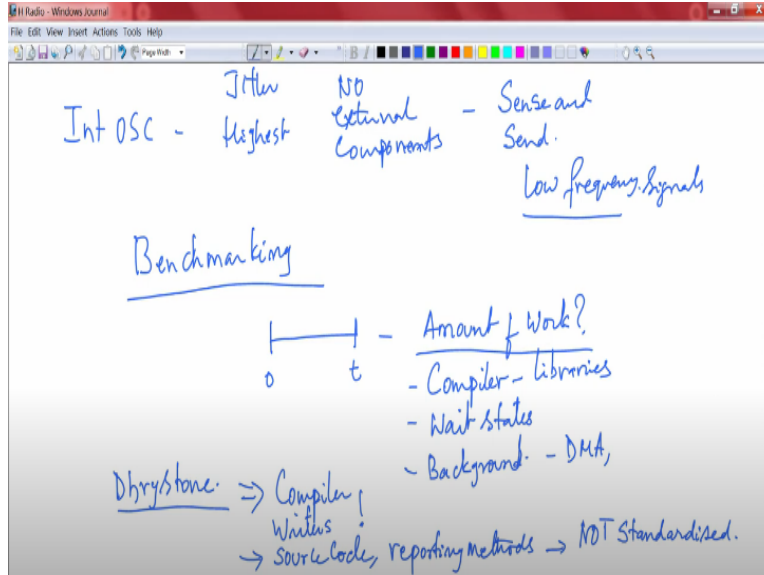 H Radio - Windows Journal
File Edit View Insert Actions Tools Help
Page Width
B I
Jitter NO
Int OSC - Highest External - Sense and
Components Send.
Low frequency signals
Benchmarking
0 t - Amount of Work?
- Compiler - libraries
- Wait states
- Background - DMA,
Dhrystone. => Compiler
Writers !
→ Source Code, reporting methods → NOT Standardised.